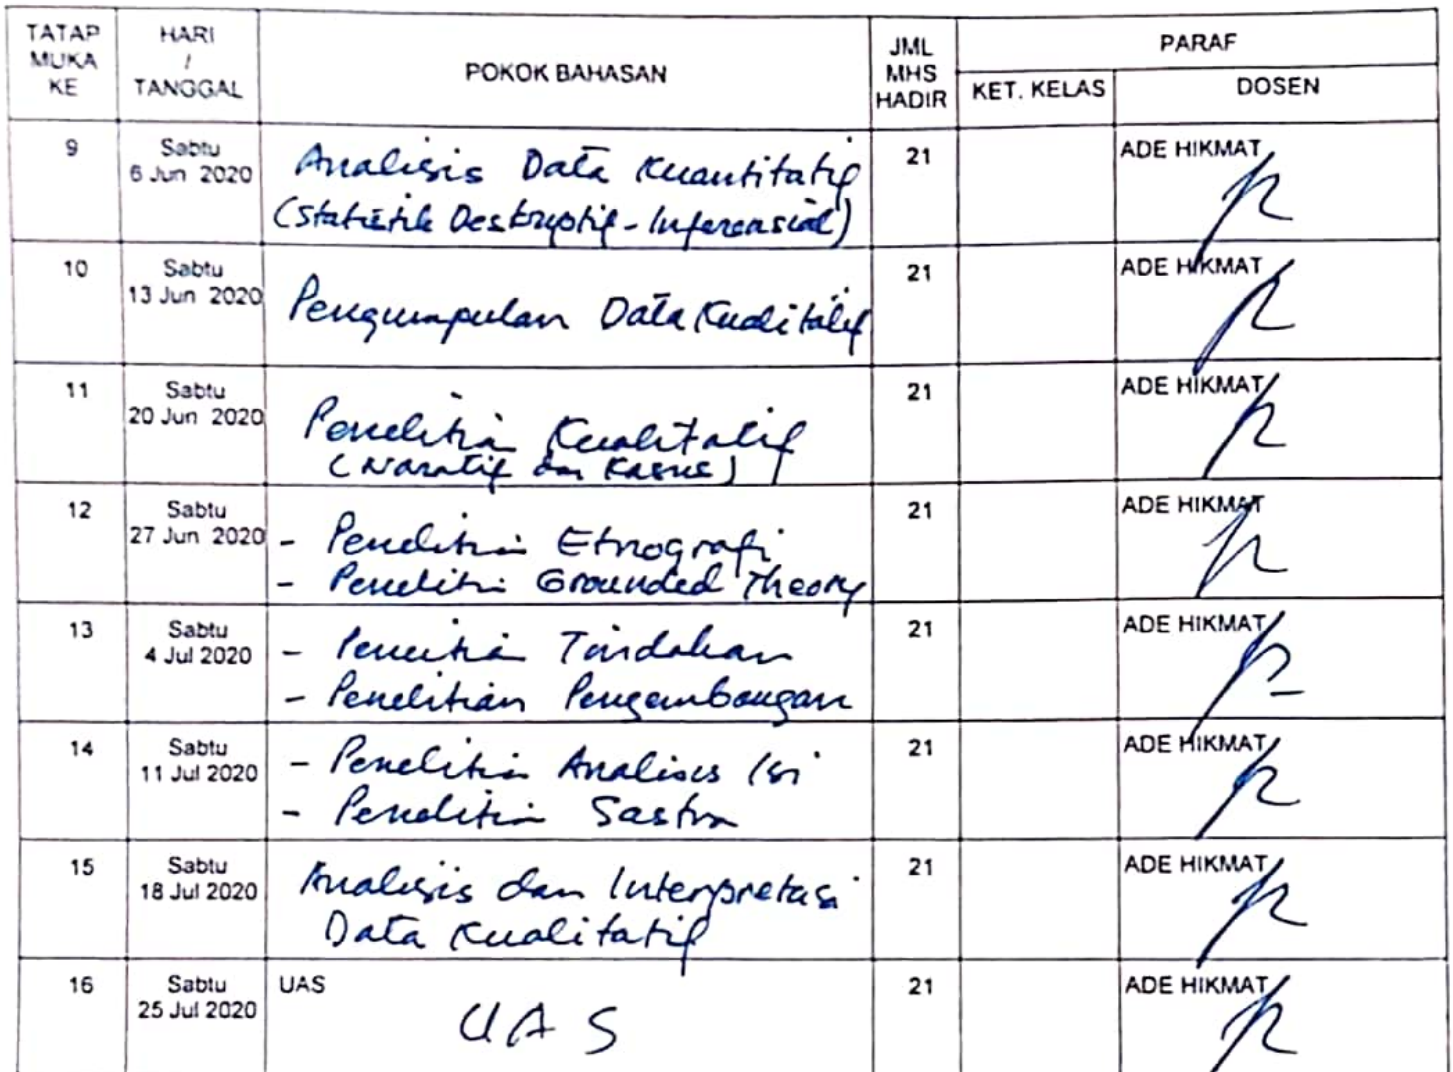 TATAP MUKA KE
HARI / TANGGAL
POKOK BAHASAN
JML MHS HADIR
PARAF
KET. KELAS
DOSEN
9
Sabtu
6 Jun 2020
Analisis Data Kuantitatif
(Statistik Deskriptif - Inferensial)
21
ADE HIKMAT
10
Sabtu
13 Jun 2020
Pengumpulan Data Kualitatif
21
ADE HIKMAT
11
Sabtu
20 Jun 2020
Penelitian Kualitatif
(Naratif dan Kasus)
21
ADE HIKMAT
12
Sabtu
27 Jun 2020
- Penelitian Etnografi
- Penelitian Grounded Theory
21
ADE HIKMAT
13
Sabtu
4 Jul 2020
- Penelitian Tindakan
- Penelitian Pengembangan
21
ADE HIKMAT
14
Sabtu
11 Jul 2020
- Penelitian Analisis Isi
- Penelitian Sastra
21
ADE HIKMAT
15
Sabtu
18 Jul 2020
Analisis dan Interpretasi
Data Kualitatif
21
ADE HIKMAT
16
Sabtu
25 Jul 2020
UAS
UAS
21
ADE HIKMAT